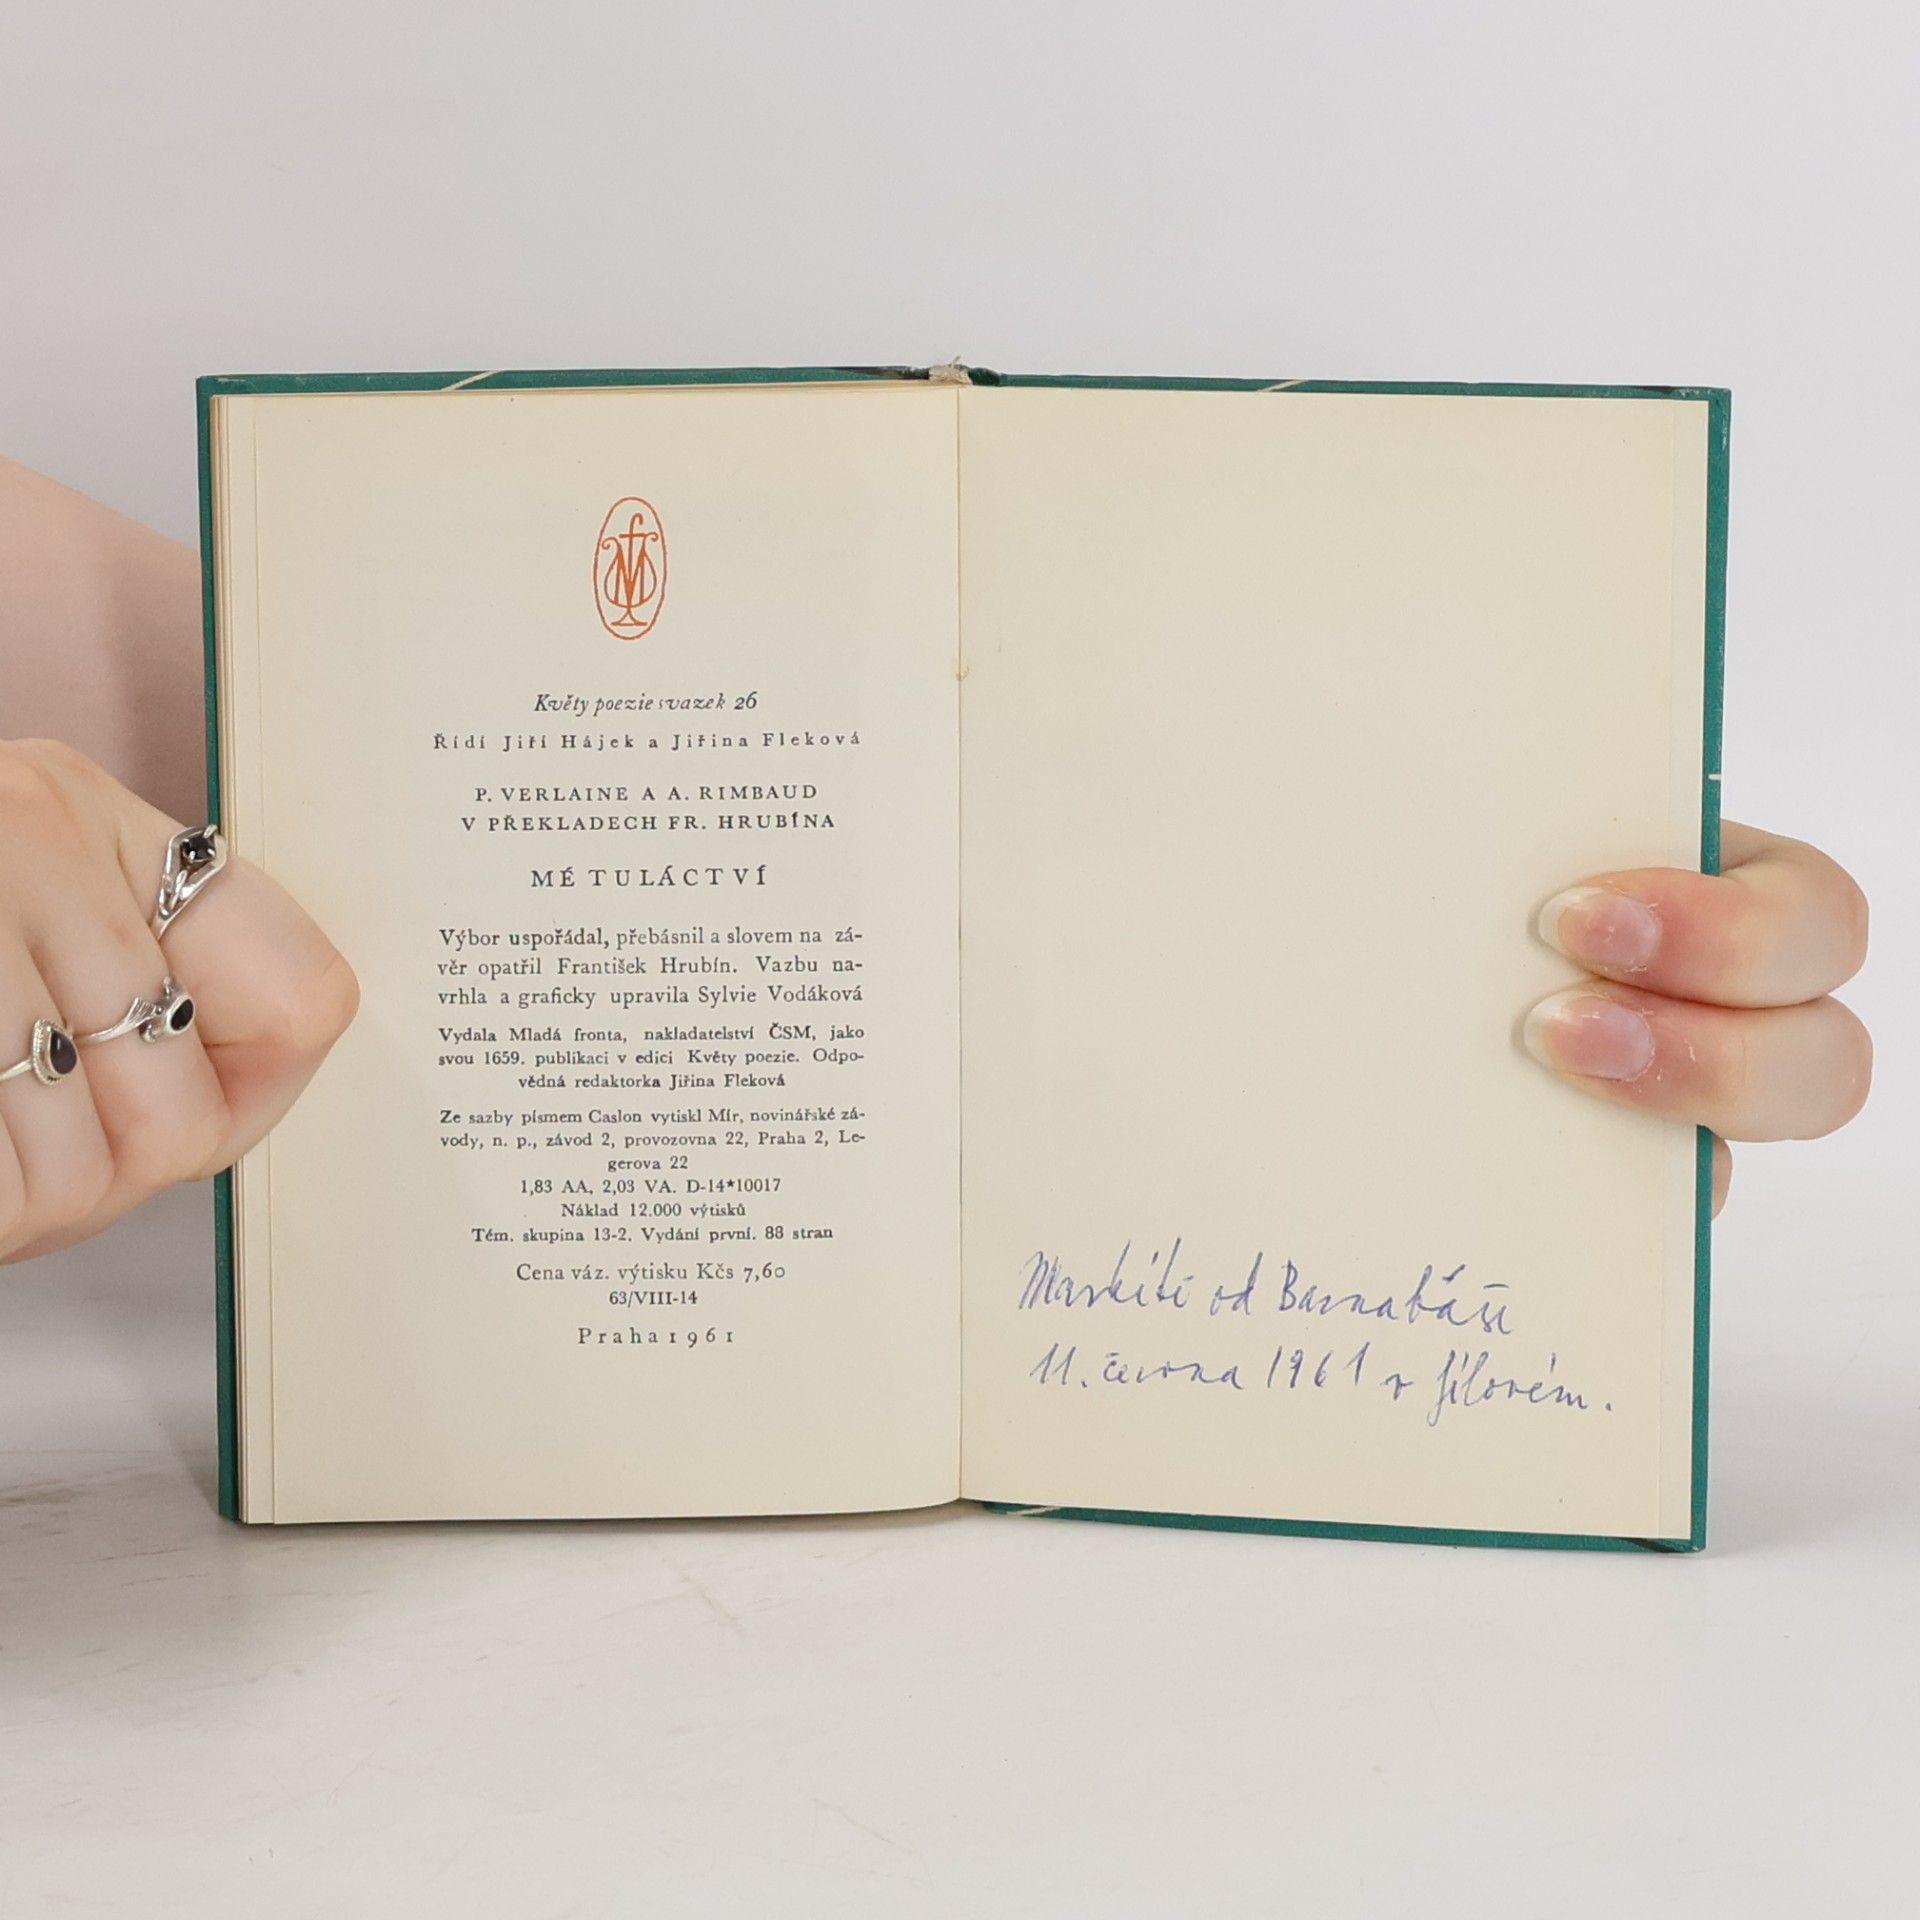 Květy poezie svazek 26
Řídí Jiří Hájek a Jiřina Fleková
P. VERLAINE A A. RIMBAUD
V PŘEKLADECH FR. HRUBÍNA
MÉ TULÁCTVÍ
Výbor uspořádal, přebásnil a slovem na zá-
věr opatřil František Hrubín. Vazbu na-
vrhla a graficky upravila Sylvie Vodáková
Vydala Mladá fronta, nakladatelství ČSM, jako
svou 1659. publikaci v edici Květy poezie. Odpo-
vědná redaktorka Jiřina Fleková
Ze sazby písmem Caslon vytiskl Mír, novinářské zá-
vody, n. p., závod 2, provozovna 22, Praha 2, Le-
gerova 22
1,83 AA, 2,03 VA. D-14*10017
Náklad 12.000 výtisků
Tém. skupina 13-2. Vydání první. 88 stran
Cena váz. výtisku Kčs 7,60
63/VIII-14
Praha 1961
od
11. června 1961 v Jílovém.